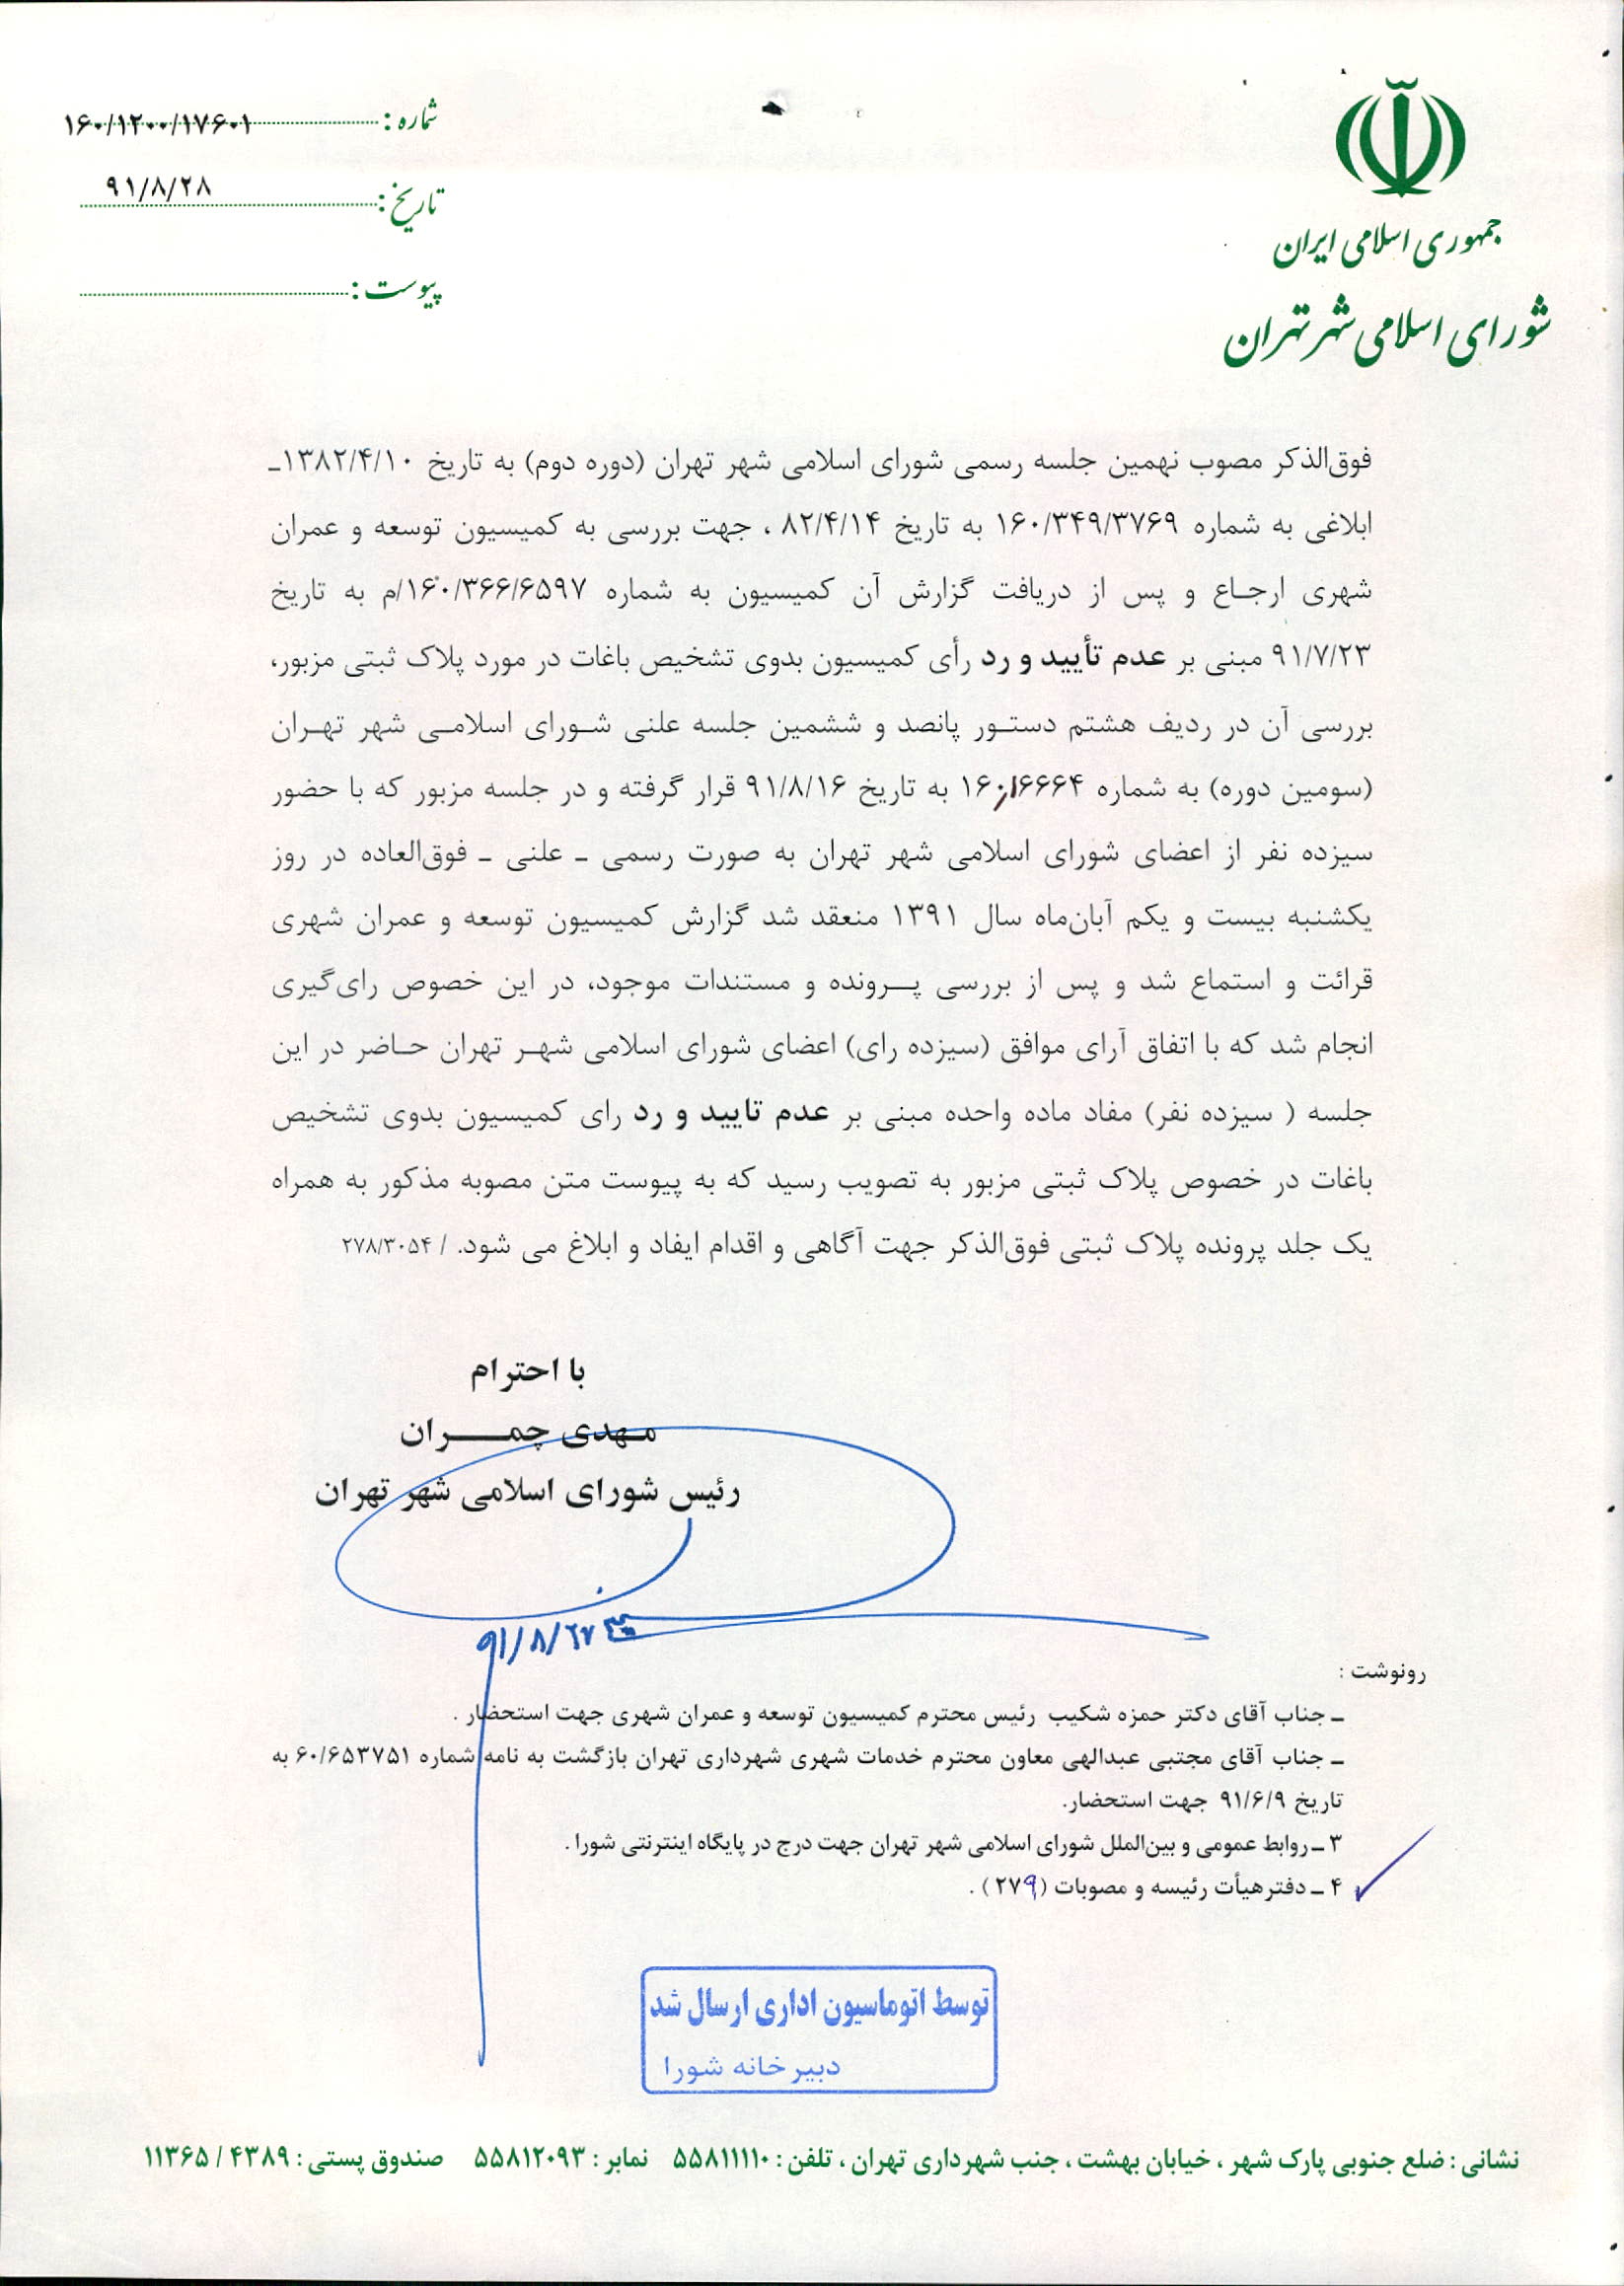 جمهوری اسلامی ایران
شورای اسلامی شهر تهران
شماره : ۱۶۰/۱۲۰۰/۱۷۶۰۱
تاریخ: ۹۱/۸/۲۸
پیوست:
فوق‌الذکر مصوب نهمین جلسه رسمی شورای اسلامی شهر تهران (دوره دوم) به تاریخ ۱۳۸۲/۴/۱۰ـ
ابلاغی به شماره ۱۶۰/۳۴۹/۳۷۶۹ به تاریخ ۸۲/۴/۱۴ ، جهت بررسی به کمیسیون توسعه و عمران
شهری ارجـاع و پس از دریافت گزارش آن کمیسیون به شماره ۱۶۰/۳۶۶/۶۵۹۷/م به تاریخ
۹۱/۷/۲۳ مبنی بر عدم تأیید و رد رأی کمیسیون بدوی تشخیص باغات در مورد پلاک ثبتی مزبور،
بررسی آن در ردیف هشتم دستـور پانصد و ششمین جلسه علنی شـورای اسلامـی شهر تهـران
(سومین دوره) به شماره ۱۶۰/۱۶۶۶۴ به تاریخ ۹۱/۸/۱۶ قرار گرفته و در جلسه مزبور که با حضور
سیزده نفر از اعضای شورای اسلامی شهر تهران به صورت رسمی ـ علنی ـ فوق‌العاده در روز
یکشنبه بیست و یکم آبان‌ماه سال ۱۳۹۱ منعقد شد گزارش کمیسیون توسعه و عمران شهری
قرائت و استماع شد و پس از بررسی پـــرونده و مستندات موجود، در این خصوص رای‌گیری
انجام شد که با اتفاق آرای موافق (سیزده رای) اعضای شورای اسلامی شهـر تهران حـاضر در این
جلسه ( سیزده نفر) مفاد ماده واحده مبنی بر عدم تایید و رد رای کمیسیون بدوی تشخیص
باغات در خصوص پلاک ثبتی مزبور به تصویب رسید که به پیوست متن مصوبه مذکور به همراه
یک جلد پرونده پلاک ثبتی فوق‌الذکر جهت آگاهی و اقدام ایفاد و ابلاغ می شود. / ۲۷۸/۳۰۵۴
با احترام
مـهدی چمـــــران
رئیس شورای اسلامی شهر تهران
۹۱/۸/۲۷
رونوشت :
ـ جناب آقای دکتر حمزه شکیب رئیس محترم کمیسیون توسعه و عمران شهری جهت استحضار .
ـ جناب آقای مجتبی عبدالهی معاون محترم خدمات شهری شهرداری تهران بازگشت به نامه شماره ۶۰/۶۵۳۷۵۱ به
تاریخ ۹۱/۶/۹ جهت استحضار.
۳ ـ روابط عمومی و بین‌الملل شورای اسلامی شهر تهران جهت درج در پایگاه اینترنتی شورا.
۴ ـ دفتر هیأت رئیسه و مصوبات (۲۷۹) .
توسط اتوماسیون اداری ارسال شد
دبیرخانه شورا
نشانی : ضلع جنوبی پارک شهر ، خیابان بهشت ، جنب شهرداری تهران ، تلفن : ۵۵۸۱۱۱۱۰ نمابر : ۵۵۸۱۲۰۹۳ صندوق پستی : ۴۳۸۹ / ۱۱۳۶۵